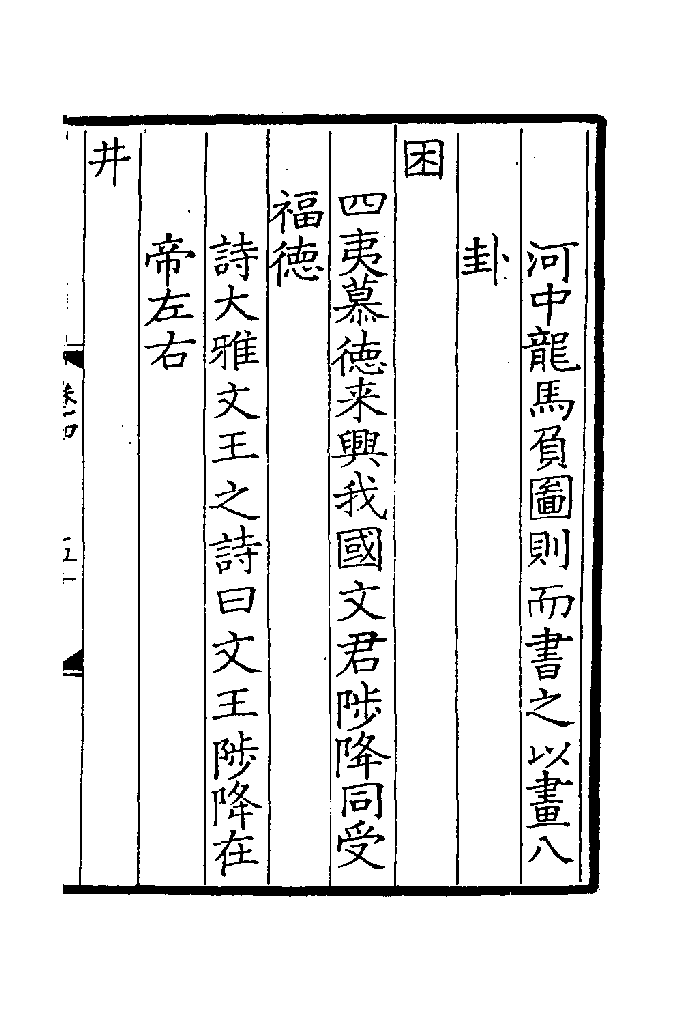 河中龍馬負圖則而書之以畫八
卦
困
四夷慕徳来興我國文君陟降同受
福徳
詩大雅文王之詩曰文王陟降在
帝左右
井